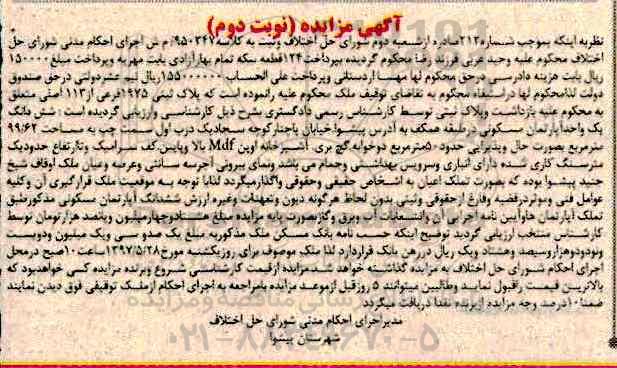 آگهی مزایده (نوبت دوم)
نظر به اینکه بموجب شماره ۲۱۲ صادره از شعبه دوم شورای حل اختلاف وثبت به کلاسه ۹۵۰۳۴۷/ م ش اجرای احکام مدنی شورای حل
اختلاف محکوم علیه وحید عربی فرزند رضا محکوم گردیده بپرداخت ۱۲۴ قطعه سکه تمام بهار آزادی بابت مهریه وپرداخت مبلغ ۱۵۰۰۰۰
ریال بابت هزینه دادرسی درحق محکوم لها مهسا اردستانی وپرداخت علی الحساب ۱۵۵۰۰۰۰۰ ریال نیم عشر دولتی درحق صندوق
دولت لذا محکوم لها دراستیفاء محکوم به تقاضای توقیف ملک محکوم علیه رانموده است که پلاک ثبتی ۱۹۷۵ فرعی از ۱۱۳ اصلی متعلق
به محکوم علیه بازداشت وپلاک ثبتی توسط کارشناس رسمی دادگستری بشرح ذیل کارشناسی وارزیابی گردیده است : شش دانگ
یک واحد آپارتمان مسکونی درطبقه همکف به آدرس پیشوا خیابان پاچنار کوچه سجادیک درب اول سمت چپ به مساحت ۹۹/۶۲
مترمربع بصورت حال وپذیرایی حدود ۵۰ مترمربع دوخوابه گچ بری، آشپزخانه اوپن Mdf بالا وپایین کف سرامیک وتاارتفاع حدودیک
مترسنگ کاری شده دارای انباری وسرویس بهداشتی وحمام می باشد ونمای بیرونی آجرسه سانتی وعرصه وعیان ملک اوقاف شیخ
جنید پیشوا بوده که بصورت تملک اعیان به اشخاص حقیقی وحقوقی واگذارمیگردد لذابا توجه به موقعیت ملک قرارگیری آن وکلیه
عوامل فنی وموثردرقضیه وفارغ ازحقوقی وثبتی بدون لحاظ هرگونه دیون وتعهدات وغیره ارزش ششدانگ آپارتمان مسکونی مذکورطبق
تملک آپارتمان هاوآیین نامه اجرایی آن وانشعابات آب وبرق وگازبصورت پایه مزایده مبلغ هشتادوچهارمیلیون وپنصد هزارتومان توسط
کارشناس منتخب ارزیابی گردید توضیح اینکه حسب نامه بانک مسکن ملک مذکوربه مبلغ یک صدو سی ویک میلیون ودویست
ونودودوهزاروسیصد وهشتاد ویک ریال دررهن بانک قراردارد لذا ملک موصوف برای روز یکشنبه مورخ ۱۳۹۷/۵/۲۸ ساعت ۱۰ صبح درمحل
اجرای احکام شورای حل اختلاف به مزایده گذاشته خواهد شد مزایده ازقیمت کارشناسی شروع وبرنده مزایده کسی خواهدبود که
بالاترین قیمت راقبول نماید وطالبین میتوانند ۵ روز قبل ازموعد مزایده بامراجعه به اجرای احکام ازملک توقیفی فوق دیدن نمایند
ضمنا ۱۰ درصد وجه مزایده ازبرنده نقدا دریافت میگردد
مدیراجرای احکام مدنی شورای حل اختلاف
شهرستان پیشوا